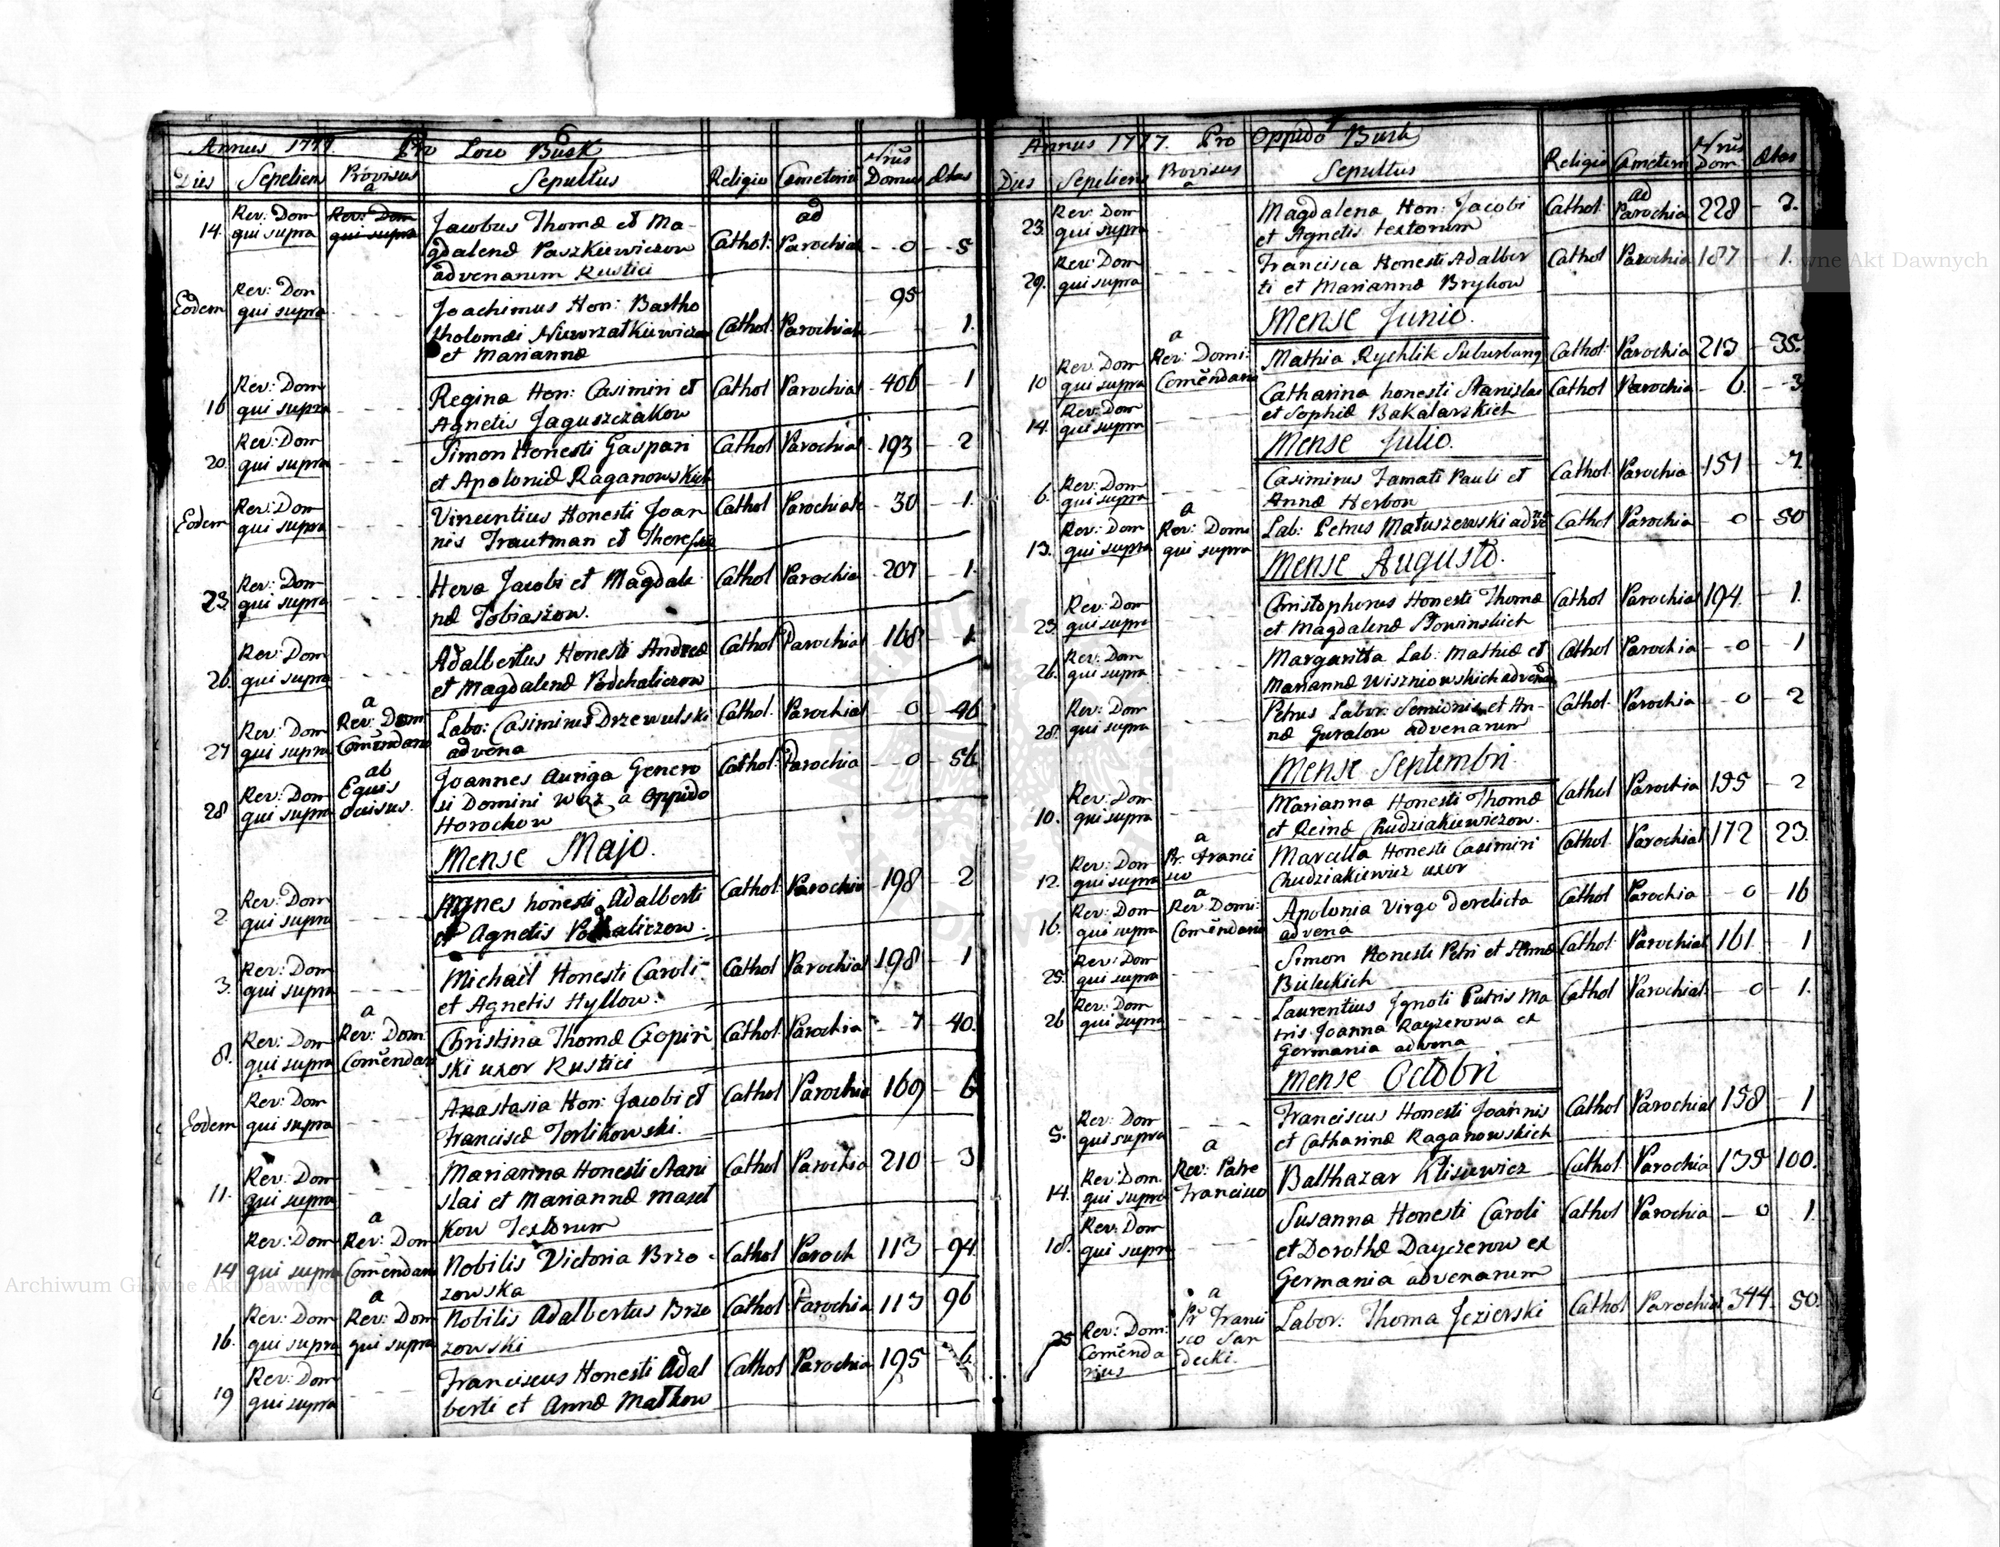 6
Annus 1777. Pro Loco Busk
Dies Sepeliens Provisus a Sepultus Religio Cemeteria Nrus Domus Ætas
14. Rev: Dom qui supra Rev: Dom qui supra Jacobus Thomæ et Ma- ad
gdalenæ Paszkiewiczow Cathol: Parochial - 0 - 5
advenarum Rustici
Eodem Rev: Dom qui supra Joachimus Hon: Bartho 95
tholomæi Niewrzałkiewiczow Cathol: Parochial - 1.
et Mariannæ
16 Rev: Dom qui supra Regina Hon: Casimiri et Cathol Parochial - 406 - 1
Agnetis Jaguszczakow
20. Rev: Dom qui supra Simon Honesti Gaspari Cathol Parochial - 193 - 2
et Apoloniæ Raganowskich
Eodem Rev: Dom qui supra Vincentius Honesti Joan Cathol Parochiale - 30 - 1.
nis Trautman et Theressiæ
23 Rev: Dom qui supra Heva Jacobi et Magdale Cathol Parochia - 207 - 1.
næ Tobiaszow.
26. Rev: Dom qui supra Adalbertus Honesti Andreæ Cathol Parochial - 168 - 1.
et Magdalenæ Pochaliczow
27 Rev: Dom qui supra a Rev: Dom Comēndario Labo: Casimirus Drzewulski Cathol. Parochial - 0 - 46
advena
28 Rev: Dom qui supra ab Equis Joannes Auriga Genero Cathol: Parochia - 0 - 56
si Domini Waz a Oppido
Horochow
Mense Majo.
2 Rev: Dom qui supra Agnes honesti Adalberti Cathol. Parochia - 198 - 2
et Agnetis Pochaliczow.
3. Rev: Dom qui supra Michael Honesti Caroli Cathol Parochial - 198 - 1
et Agnetis Hyllow.
8. Rev: Dom qui supra a Rev: Dom Comēndario Christina Thomæ Czopin Cathol Parochia - 7 - 40.
ski uxor Rustici
Eodem Rev: Dom qui supra Anastasia Hon: Jacobi et Cathol Parochia 169 - 6
Franciscæ Tertikowski.
11. Rev: Dom qui supra Marianna Honesti Stani Cathol Parochia 210 - 3
slai et Mariannæ Maset
kow Textorum
14 Rev: Dom qui supra a Rev: Dom Comēndario Nobilis Victoria Brzo- Cathol Paroch 113 - 94
zowska
16. Rev: Dom qui supra a Rev: Dom qui supra Nobilis Adalbertus Brzo Cathol Parochia 113 96
zowski
19 Rev: Dom qui supra Franciscus Honesti Adal Cathol Parochia 195 - 6
berti et Annæ Mathow
7
Annus 1777. Pro Oppido Busk
Dies Sepeliens Provisus a Sepultus Religio Cæmeterii Nrus Dom. Ætas
23. Rev: Dom qui supra Magdalena Hon: Jacobi Cathol ad Parochia 228 - 3.
et Agnetis textorum
29. Rev: Dom qui supra Francisca Honesti Adalber Cathol Parochia 187 1.
ti et Mariannæ Brykow
Mense Junio.
10 Rev: Dom qui supra a Rev: Domi: Comēndario Mathia Rychlik Suburbang Cathol. Parochia 213 - 35.
14. Rev: Dom qui supra Catharina honesti Stanislai Cathol Parochia - 6. - 3
et Sophiæ Bakalarskich
Mense Julio.
6. Rev: Dom qui supra Casimirus Famati Pauli et Cathol. Parochia 151 - 7.
Annæ Herbon
13. Rev: Dom qui supra a Rev: Domi qui supra Lab: Petrus Matuszewski advē Cathol Parochia - 0 - 50
Mense Augusto.
23. Rev: Dom qui supra Christophorus Honesti Thomæ Cathol Parochial 194. - 1.
et Magdalenæ Słowinskich
26. Rev: Dom qui supra Margaritta Lab: Mathiæ et Cathol Parochia - 0 - 1
Mariannæ Wiszniowskich advenar
28. Rev: Dom qui supra Petrus Labor: Semionis et An- Cathol. Parochia - 0 - 2
næ Guralow advenarum
Mense Septembri.
10. Rev: Dom qui supra Marianna Honesti Thomæ Cathol Parochia 195 - 2
et Reinæ Chudziakiewiczow.
12. Rev: Dom qui supra a Pr. Franci sco Marcella Honesti Casimiri Cathol. Parochial 172 23.
Chudziakiewicz uxor
16. Rev: Dom qui supra a Rev: Domi: Comēndario Apolonia Virgo derelicta Cathol Parochia - 0 - 16
advena
25. Rev: Dom qui supra Simon Honesti Petri et Annæ Cathol. Parochial 161. - 1
Bieleckich
26 Rev: Dom qui supra Laurentius Ignoti Patris Ma Cathol Parochial - 0 - 1.
tris Joanna Rayzerowa ex
Germania advena
Mense Octobri
5. Rev: Dom qui supra Franciscus Honesti Joannis Cathol Parochial 158 - 1
et Catharinæ Raganowskich
14. Rev: Dom. qui supra a Rev: Patre Francisco Balthazar Klisiewicz Cathol Parochia 135 100.
18. Rev: Dom qui supra Susanna Honesti Caroli Cathol Parochia - 0 1.
et Dorothæ Dayczerow ex
Germania advenarum
25 Rev: Dom: Comēnda rius a Pr Franci sco San decki. Labor: Thoma Jezierski Cathol Parochial 344. 50.
Archiwum Główne Akt Dawnych
Archiwum Główne Akt Dawnych